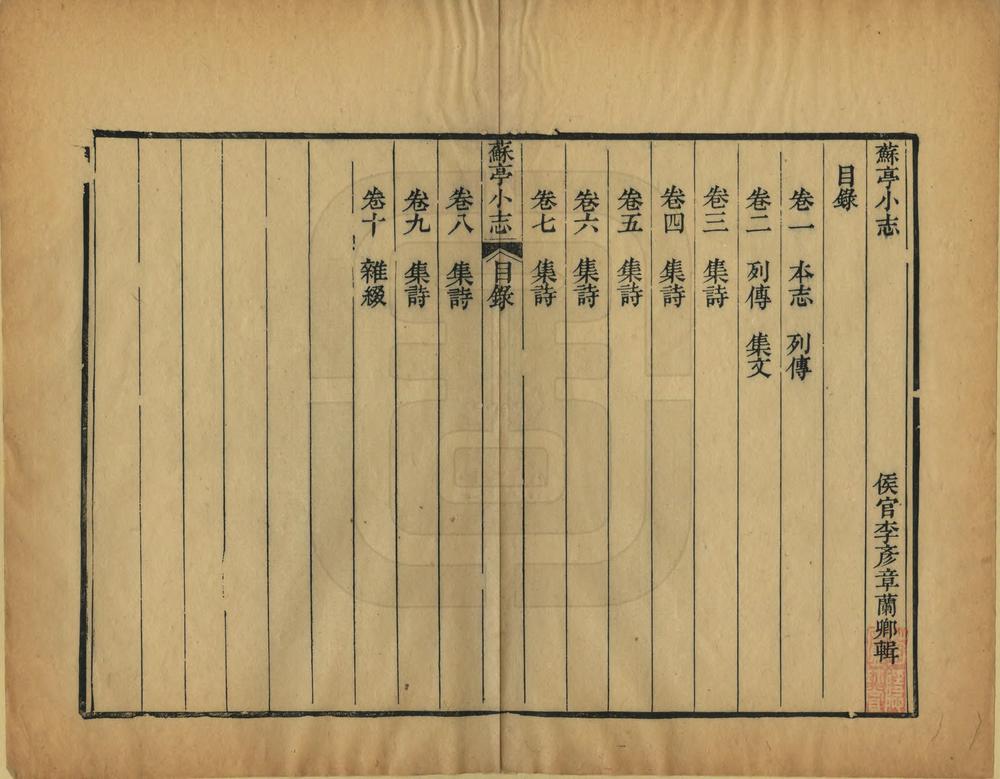 蘇亭小志
侯官李彥章蘭卿輯
目錄
卷一 本志 列傳
卷二 列傳 集文
卷三 集詩
卷四 集詩
卷五 集詩
卷六 集詩
卷七 集詩
蘇亭小志 目錄
卷八 集詩
卷九 集詩
卷十 雜綴